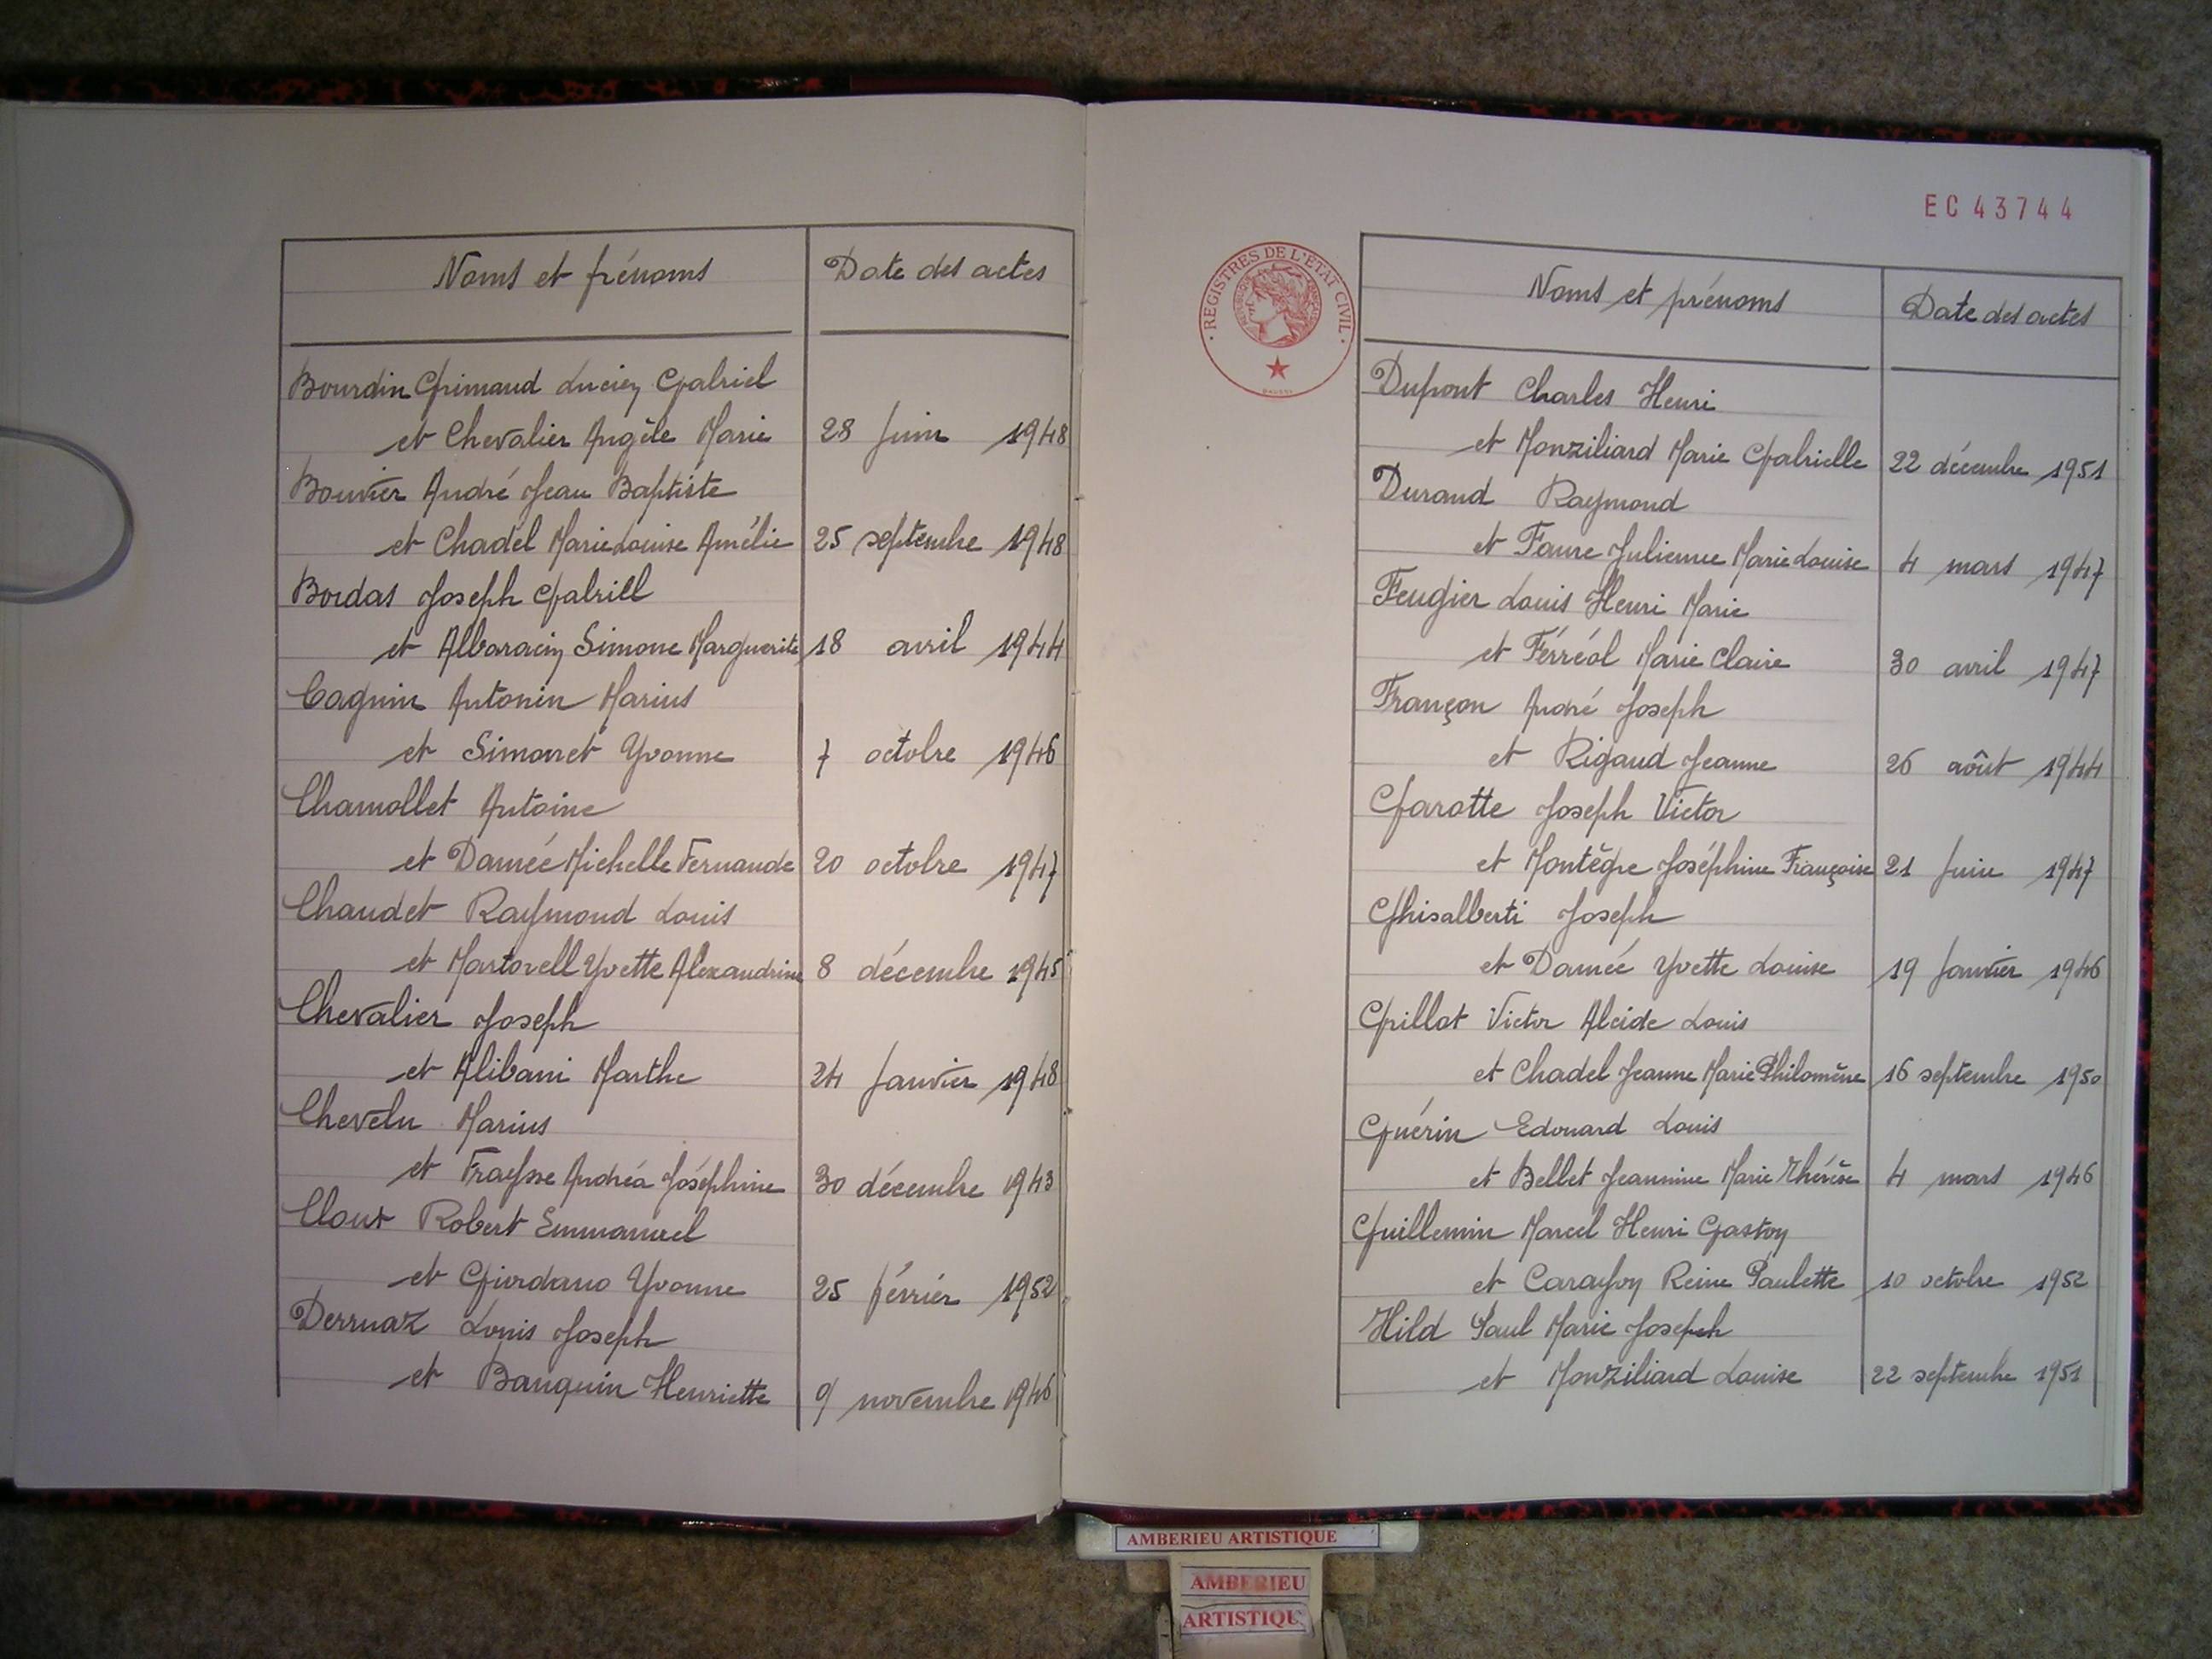 Noms et prénoms Date des actes
Bourdin Grimaud Lucien Gabriel
et Chevalier Angèle Marie 28 Juin 1948
Bouvier André Jean Baptiste
et Chadel Marie Louise Amélie 25 septembre 1948
Bordas Joseph Gabriel
et Albaracin Simone Marguerite 18 avril 1944
Cagnin Antonin Marius
et Simonet Yvonne 7 octobre 1946
Chamollet Antoine
et Damée Michelle Fernande 20 octobre 1947
Chaudet Raymond Louis
et Martorell Yvette Alexandrine 8 décembre 1945
Chevalier Joseph
et Alibani Marthe 24 Janvier 1948
Chevelu Marius
et Fraysse Andréa Joséphine 30 décembre 1943
Clout Robert Emmanuel
et Giordano Yvonne 25 février 1952
Derruaz Louis Joseph
et Banquin Henriette 9 novembre 1946
EC 43744
REGISTRES DE L'ETAT CIVIL
Noms et prénoms Date des actes
Dupont Charles Henri
et Monziliard Marie Gabrielle 22 décembre 1951
Durand Raymond
et Faure Julienne Marie Louise 4 mars 1947
Feugier Louis Henri Marie
et Férréol Marie Claire 30 avril 1947
Françon André Joseph
et Rigaud Jeanne 26 août 1944
Garotte Joseph Victor
et Montègre Joséphine Françoise 21 Juin 1947
Ghisalberti Joseph
et Damée Yvette Louise 19 Janvier 1946
Grillot Victor Alcide Louis
et Chadel Jeanne Marie Philomène 16 septembre 1950
Guérin Edouard Louis
et Bellet Jeannine Marie Thérèse 4 mars 1946
Guillemin Marcel Henri Gaston
et Carayon Reine Paulette 10 octobre 1952
Hild Paul Marie Joseph
et Monziliard Louise 22 septembre 1951
AMBERIEU ARTISTIQUE
AMBERIEU
ARTISTIQU